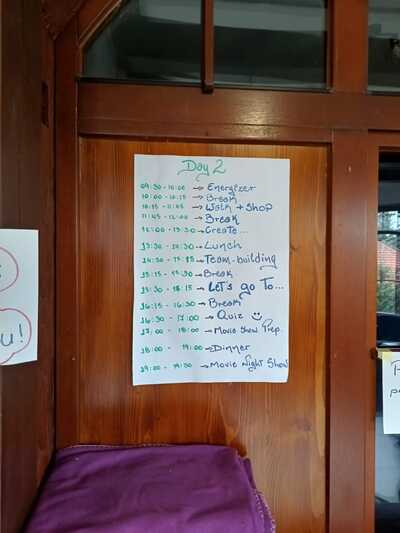 Day 2
09:30 - 10:00 → Energizer
10:00 - 10:15 → Break
10:15 - 11:45 → Walk + Shop
11:45 - 12:00 → Break
12:00 - 13:30 → Create...
13:30 - 14:30 → Lunch
14:30 - 15:15 → Team-building
15:15 - 15:30 → Break
15:30 - 16:15 → Let's go To...
16:15 - 16:30 → Break
16:30 - 17:00 → Quiz ☺
17:00 - 18:00 → Movie Show Prep.
18:00 - 19:00 → Dinner
19:00 - 19:30 → Movie Night Show
u!